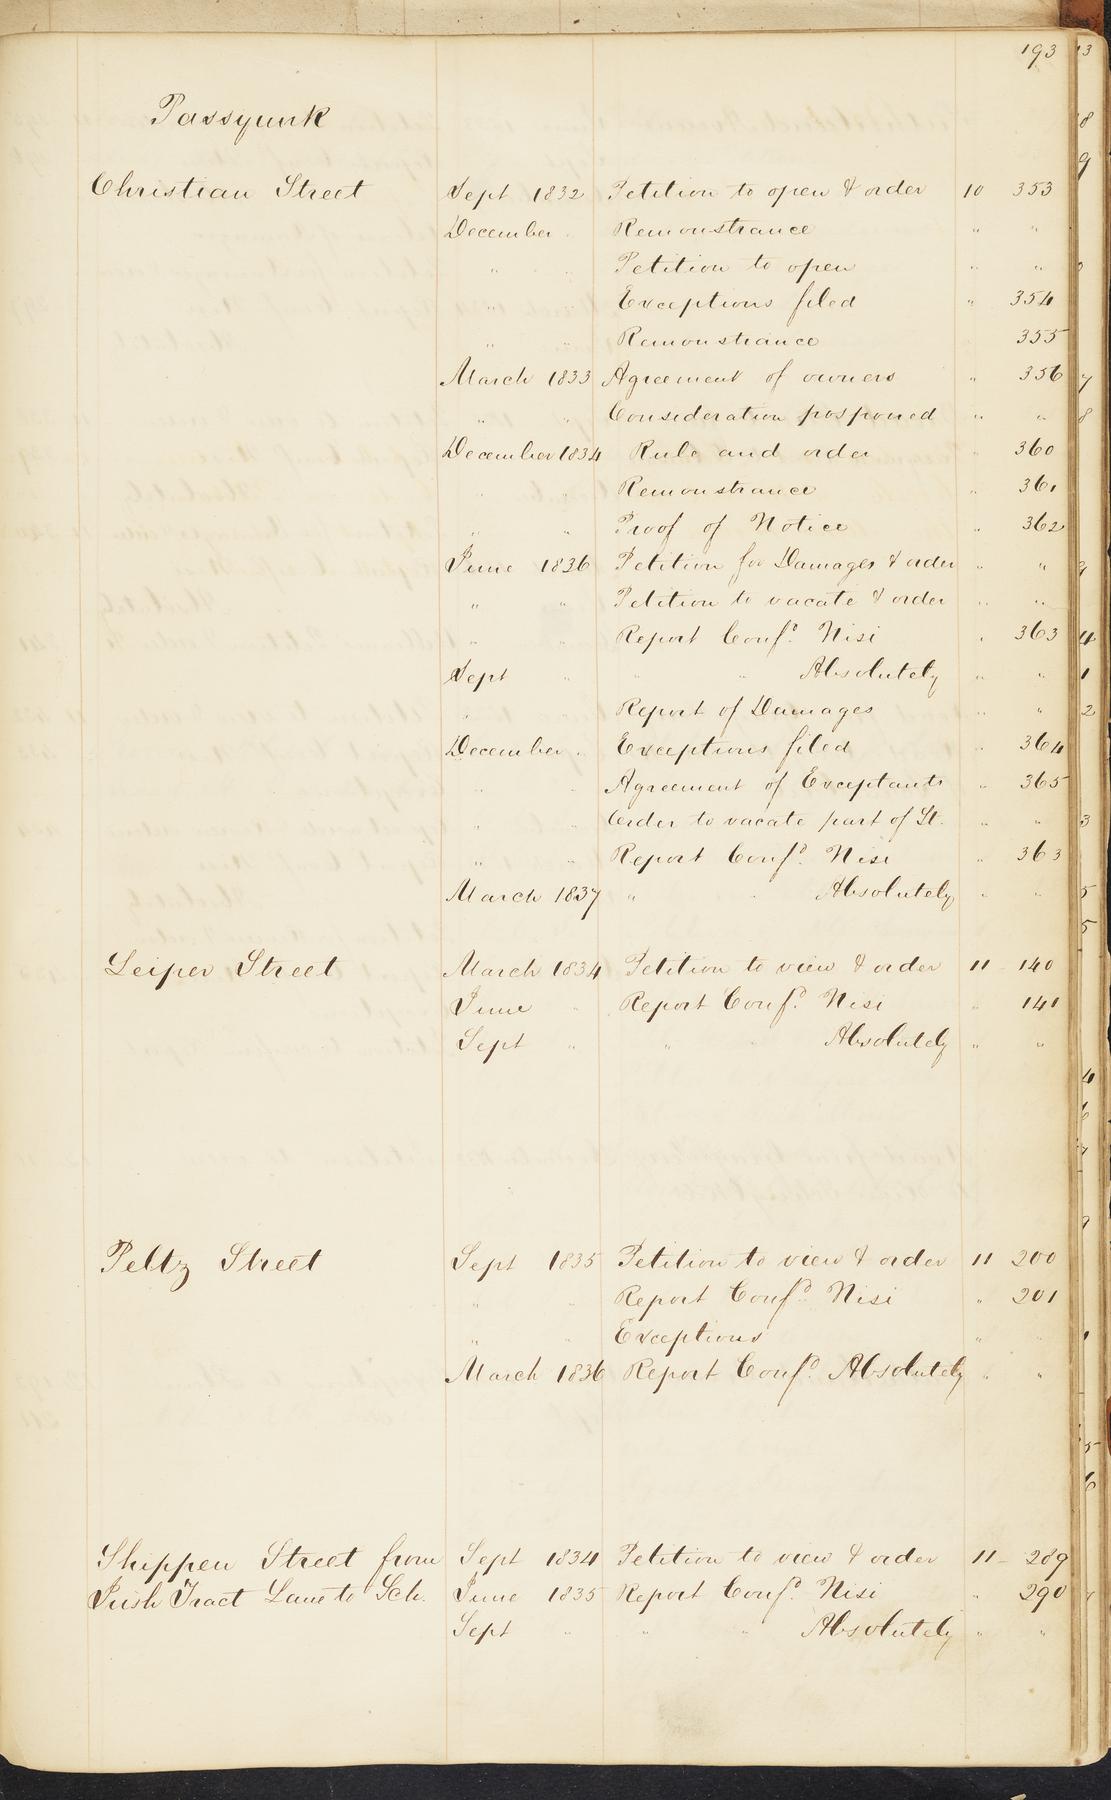 193
Passyunk
Christian Street Sept 1832 Petition to open & order 10 353
December " Remonstrance " "
" " Petition to open " "
" Exceptions filed " 354
" " Remonstrance 355
March 1833 Agreement of owners " 356
" " Consideration posponed " "
December 1834 Rule and order " 360
" " Remonstrance " 361
" " Proof of Notice " 362
June 1836 Petition for Damages & order " "
" " Petition to vacate & order " "
" " Report Confd. Nisi " 363
Sept " " " Absolutely " "
" Report of Damages " "
December " Exceptions filed " 364
" " Agreement of Exceptants " 365
" Order to vacate part of St. " "
" " Report Confd. Nisi " 363
March 1837 " " Absolutely " "
Leiper Street March 1834 Petition to view & order 11 140
June " Report Confd. Nisi " 141
Sept " " " Absolutely " "
Peltz Street Sept 1835 Petition to view & order 11 200
" " Report Confd. Nisi " 201
" " Exceptions " "
March 1836 Report Confd. Absolutely " "
Shippen Street from Sept 1834 Petition to view & order 11 - 289
Irish Tract Lane to Sch. June 1835 Report Confd. Nisi " 290
Sept " " " Absolutely " "